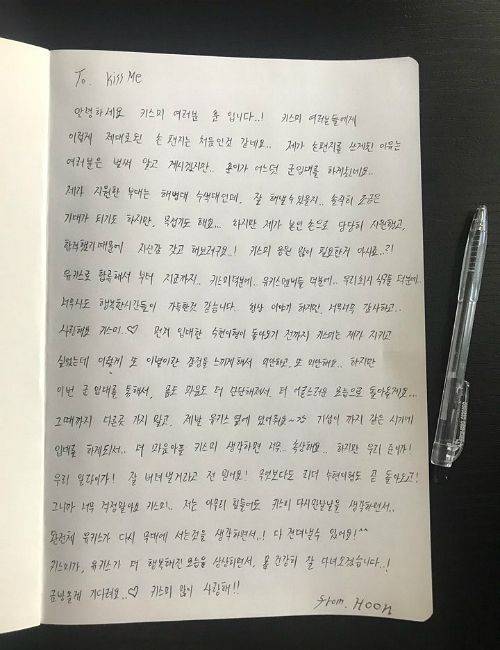 To. Kiss Me
안녕하세요 키스미 여러분 훈 입니다..! 키스미 여러분들에게
이렇게 제대로된 손 편지는 처음인것 같네요.. 제가 손편지를 쓰게된 이유는
여러분은 벌써 알고 계시겠지만.. 훈이가 어느덧 군입대를 하게됐네요..
제가 지원한 부대는 해병대 수색대인데. 잘 해낼수 있을지.. 솔직히 조금은
기대가 되기도 하지만. 무섭기도 해요... 하지만 제가 본인 손으로 당당히 지원했고,
합격했기때문에 자신감 갖고 해보려구요..! 키스미 응원 많이 필요한거 아시죠..?!
유키스로 합류해서 부터 지금까지.. 키스미덕분에.. 유키스멤버들 덕분에.. 우리회사 식구들 덕분에..
너무나도 행복한시간들이 가득한것 같습니다. 항상 이야기 하지만, 너무너무 감사하고..
사랑해요 키스미.♡ 먼저 입대한 수현이형이 돌아오기 전까지 키스미는 제가 지키고
싶었는데 이렇게 또 이별이란 감정을 느끼게해서 미안하고. 또 미안해요.. 하지만
이번 군 입대를 통해서. 몸도 마음도 더 단단해져서. 더 어른스러운 모습으로 돌아올게요...
그때까지 다른곳 가지 말고, 제발 유키스 옆에 있어줘요~ㅋㅋ 기섭이 까지 같은 시기에
입대를 하게되서.. 더 마음아플 키스미 생각하면 너무.. 속상해요.. 하지만 우리 준이가!
우리 일라이가! 잘 버텨 낼거라고 전 믿어요! 무엇보다도 리더 수현이형도 곧 돌아오고!
그니까 너무 걱정말아요 키스미.. 저는 아무리 힘들어도 키스미 다시만날날을 생각하면서..
완전체 유키스가 다시 무대에 서는것을 생각하면서..! 다 견뎌낼수 있어요!^^
키스미가, 유키스가 더 행복해진 모습을 상상하면서, 몸 건강히 잘 다녀오겠습니다..!
금방올게 기다려요..♡ 키스미 많이 사랑해!!
from. HOON